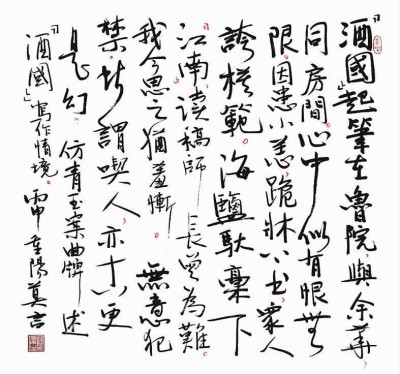 「酒國」起筆在魯院,與余華
同房間。心中似有恨無
限。因患小恙跪牀以書,衆人
誇模範。海鹽馱稾下
江南,讀稿師長曾為難。
我今思之猶羞慚 無意犯
禁,所謂喫人,亦更
是幻。 仿青玉案曲牌 述
「酒國」寫作情境。丙申重陽莫言